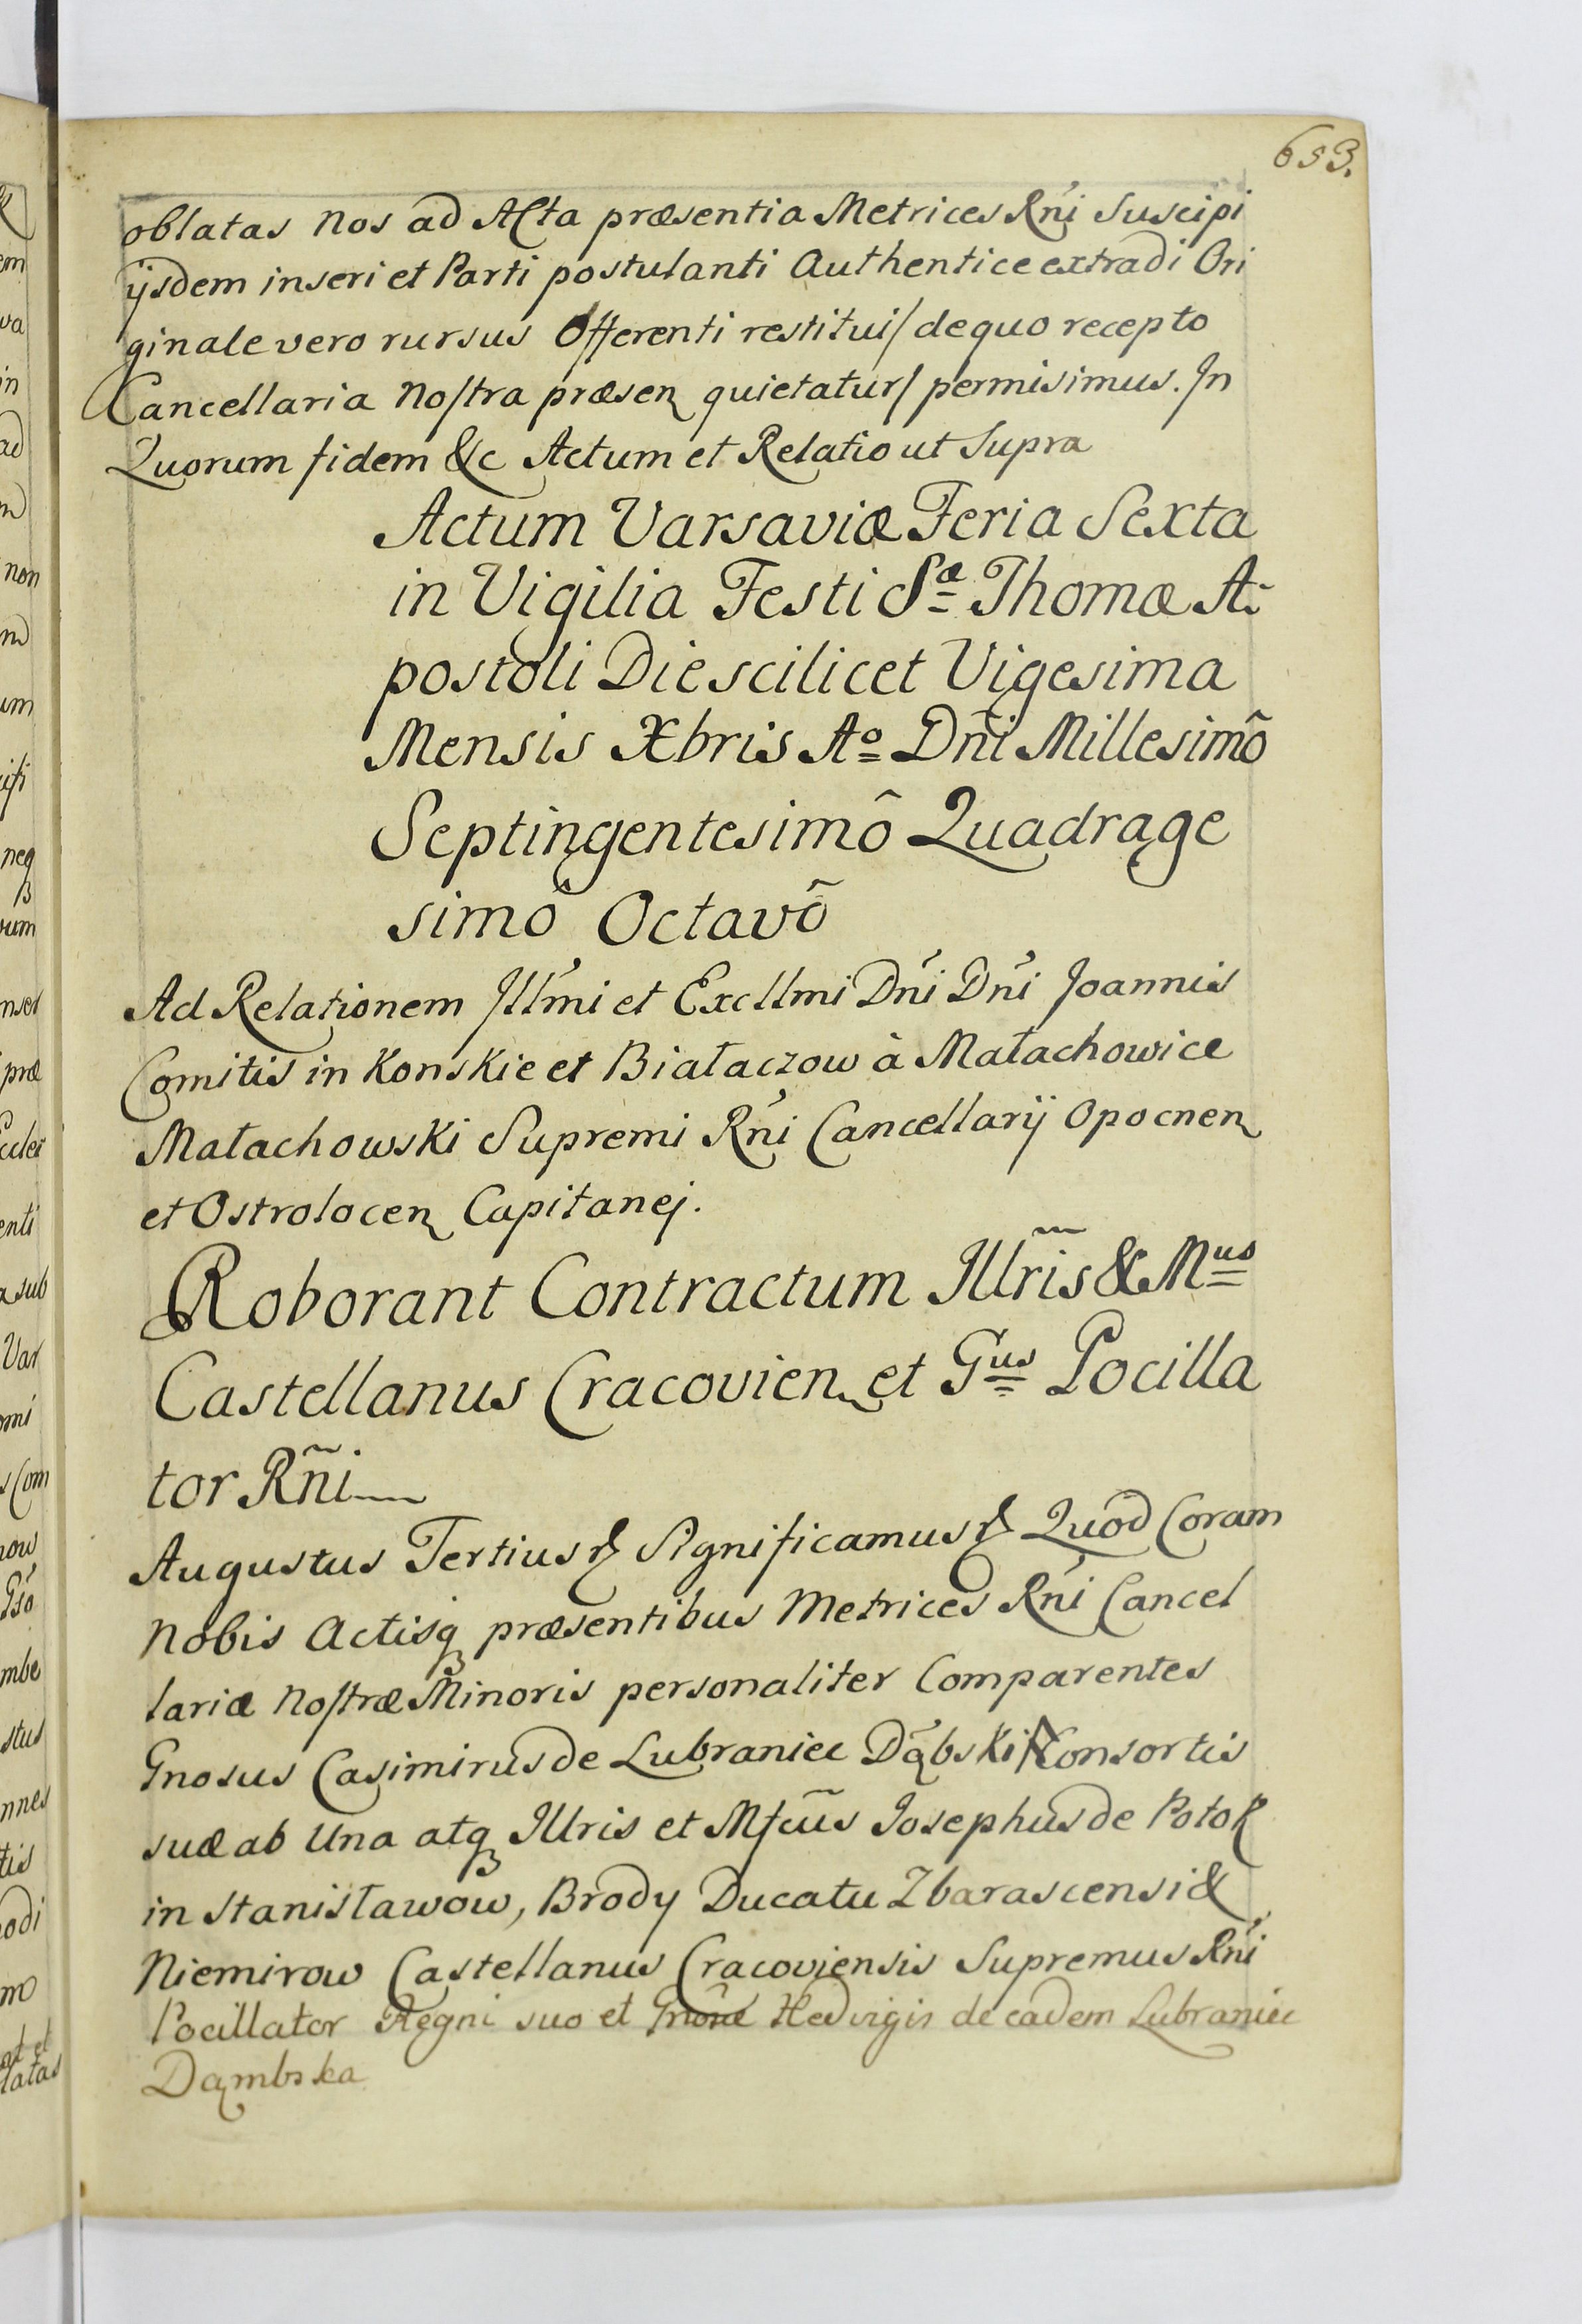 653.
oblatas Nos ad Acta præsentia Metrices Rñi Suscipi
ijsdem inseri et Parti postulanti Authentice extradi Ori
ginale vero rursus Offerenti restitui/ de quo recepto
Cancellaria Nostra præsen quietatur/ permisimus. In
Quorum fidem &c Actum et Relatio ut Supra
Actum Varsaviæ Feria Sexta
in Vigilia Festi Sæ Thomæ A-
postoli Die scilicet Vigesima
Mensis Xbris Ao Dñi Millesimô
Septingentesimô Quadrage
simô Octavô
Ad Relationem Illmi et Excllmi Dñi Dñi Joannis
Comitis in Konskie et Białaczow à Małachowice
Małachowski Supremi Rñi Cancellarij Opocnen
et Ostrolocen Capitanej.
Roborant Contractum Illris & Mus
Castellanus Cracovien et Gus Pocilla
tor Rñi
Augustus Tertius Significamus Quod Coram
Nobis Actisq præsentibus Metrices Rñi Cancel
lariæ Nostræ Minoris personaliter Comparentes
Gnosus Casimirus de Lubraniec Dąbski Consortis
suæ ab Una atq Illris et Mfcus Josephus de Potok
in Stanisławow, Brody Ducatu Zbarascensi &
Niemirow Castellanus Cracoviensis Supremus Rñi
Pocillator Regni suo et Hedvigis de eadem Lubraniec
Dąmbska